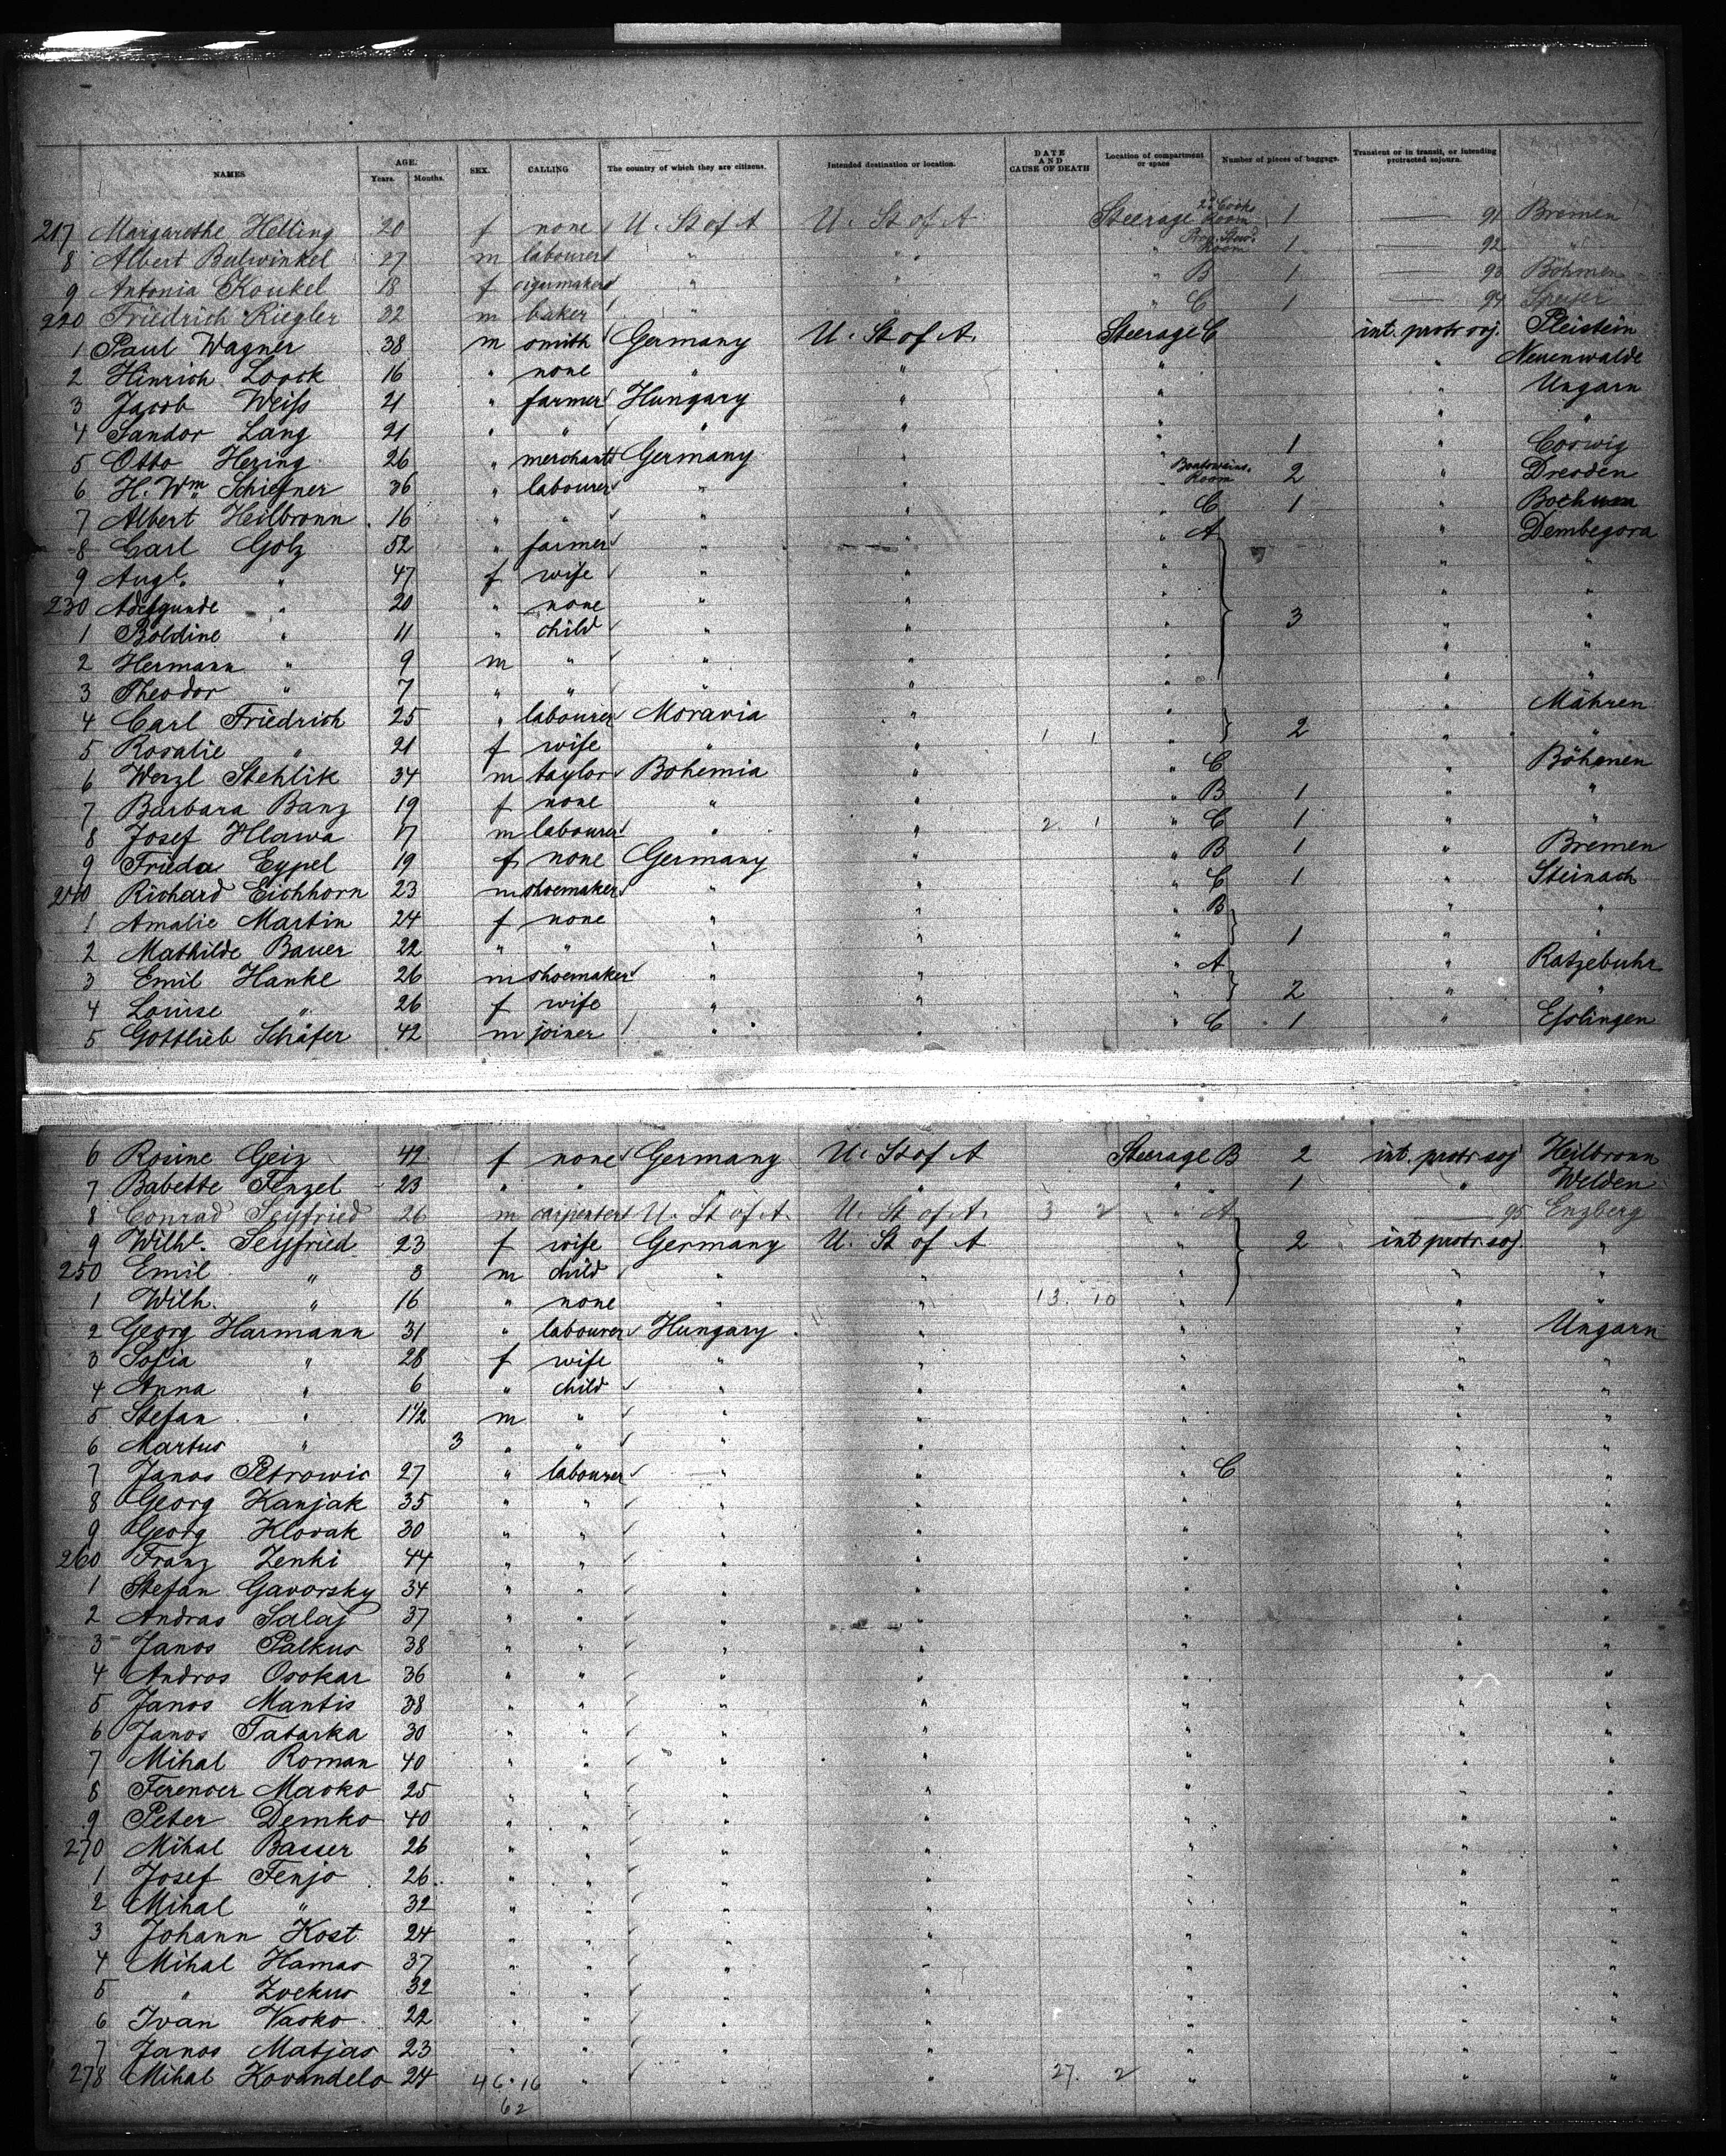 NAMES AGE. Years. Months. SEX. CALLING The country of which they are citizens. Intended destination or location. DATE AND CAUSE OF DEATH Location of compartment or space Number of pieces of baggage. Transient or in transit, or intending protracted sojourn.
217 Margarethe Helling 20 f none U. St of A U. St of A Steerage 2d Cooks Room 1 — 91 Bremen
8 Albert Bulwinkel 27 m labourer " " " Room 1 — 92 "
9 Antonia Koukel 18 f cigarmaker " " " B 1 — 93 Böhmen
220 Friedrich Riegler 32 m baker " " " C 1 — 94 Speyer
1 Paul Wagner 38 m smith Germany U. St of A. Steerage C int. protr soj. Pleistein
2 Hinrich Loock 16 " none " " " " Neuenwalde
3 Jacob Weiss 21 " farmer Hungary " " " Ungarn
4 Sandor Lang 21 " " " " " " "
5 Otto Hering 26 " merchant Germany " " 1 " Coswig
6 H. Wm Schiefner 36 " labourer " " " Boatswains Room 2 " Dresden
7 Albert Heilbronn 16 " " " " " C 1 " Bochum
8 Carl Golz 52 " farmer " " " A " Dembegora
9 Augl. " 47 f wife " " " " "
230 Adelgunde " 20 " none " " " " "
1 Boldine " 11 " child " " " 3 " "
2 Hermann " 9 m " " " " " "
3 Theodor " 7 " " " " " " "
4 Carl Friedrich 25 " labourer Moravia " " " Mähren
5 Rosalie " 21 f wife " " 1 1 " 2 " "
6 Wenzl Stehlik 34 m taylor Bohemia " " C " Böhmen
7 Barbara Banz 19 f none " " " B 1 " "
8 Josef Hlawa 17 m labourer " " 2 1 " C 1 " "
9 Frieda Eypel 19 f none Germany " " B 1 " Bremen
240 Richard Eichhorn 23 m shoemaker " " " C 1 " Steinach
1 Amalie Martin 24 f none " " " B " "
2 Mathilde Bauer 22 " " " " " 1 " "
3 Emil Hanke 26 m shoemaker " " " A " Ratzebuhr
4 Louise " 26 f wife " " " 2 " "
5 Gottlieb Schäfer 42 m joiner " " " C 1 " Esslingen
6 Rosine Geiz 42 f none Germany U. St of A Steerage B 2 int. protr soj Heilbronn
7 Babette Fenzel 23 " " " " " " 1 " Welden
8 Conrad Seyfried 26 m carpenter U. St of A. U. St of A. 3 2 " A — 95 Enzberg
9 Wilhl. Seyfried 23 f wife Germany U. St of A " 2 int protr. soj. "
250 Emil " 3 m child " " " " "
1 Wilh. " 16 " none " " 13. 10 " " "
2 Georg Harmann 31 " labourer Hungary " " " Ungarn
3 Sofia " 28 f wife " " " " "
4 Anna " 6 " child " " " " "
5 Stefan " 1 1/2 m " " " " " "
6 Martus " 3 " " " " " " "
7 Janos Petrowic 27 " labourer " " " C " "
8 Georg Kanjak 35 " " " " " " "
9 Georg Klovak 30 " " " " " " "
260 Franz Zenki 44 " " " " " " "
1 Stefan Gavorsky 34 " " " " " " "
2 Andras Salaj 37 " " " " " " "
3 Janos Palkus 38 " " " " " " "
4 Andros Osokar 36 " " " " " " "
5 Janos Mantis 38 " " " " " " "
6 Janos Tatarka 30 " " " " " " "
7 Mihal Roman 40 " " " " " " "
8 Ferencer Masko 25 " " " " " " "
9 Peter Demko 40 " " " " " " "
270 Mihal Basser 26 " " " " " " "
1 Josef Fenjo 26 " " " " " " "
2 Mihal " 32 " " " " " " "
3 Johann Kost 24 " " " " " " "
4 Mihal Hamas 37 " " " " " " "
5 " Zockus 32 " " " " " " "
6 Ivan Vasko 22 " " " " " " "
7 Janos Matjas 23 " " " " " " "
278 Mihal Kovandelo 24 46.16 " " " 27. 2 " " "
62